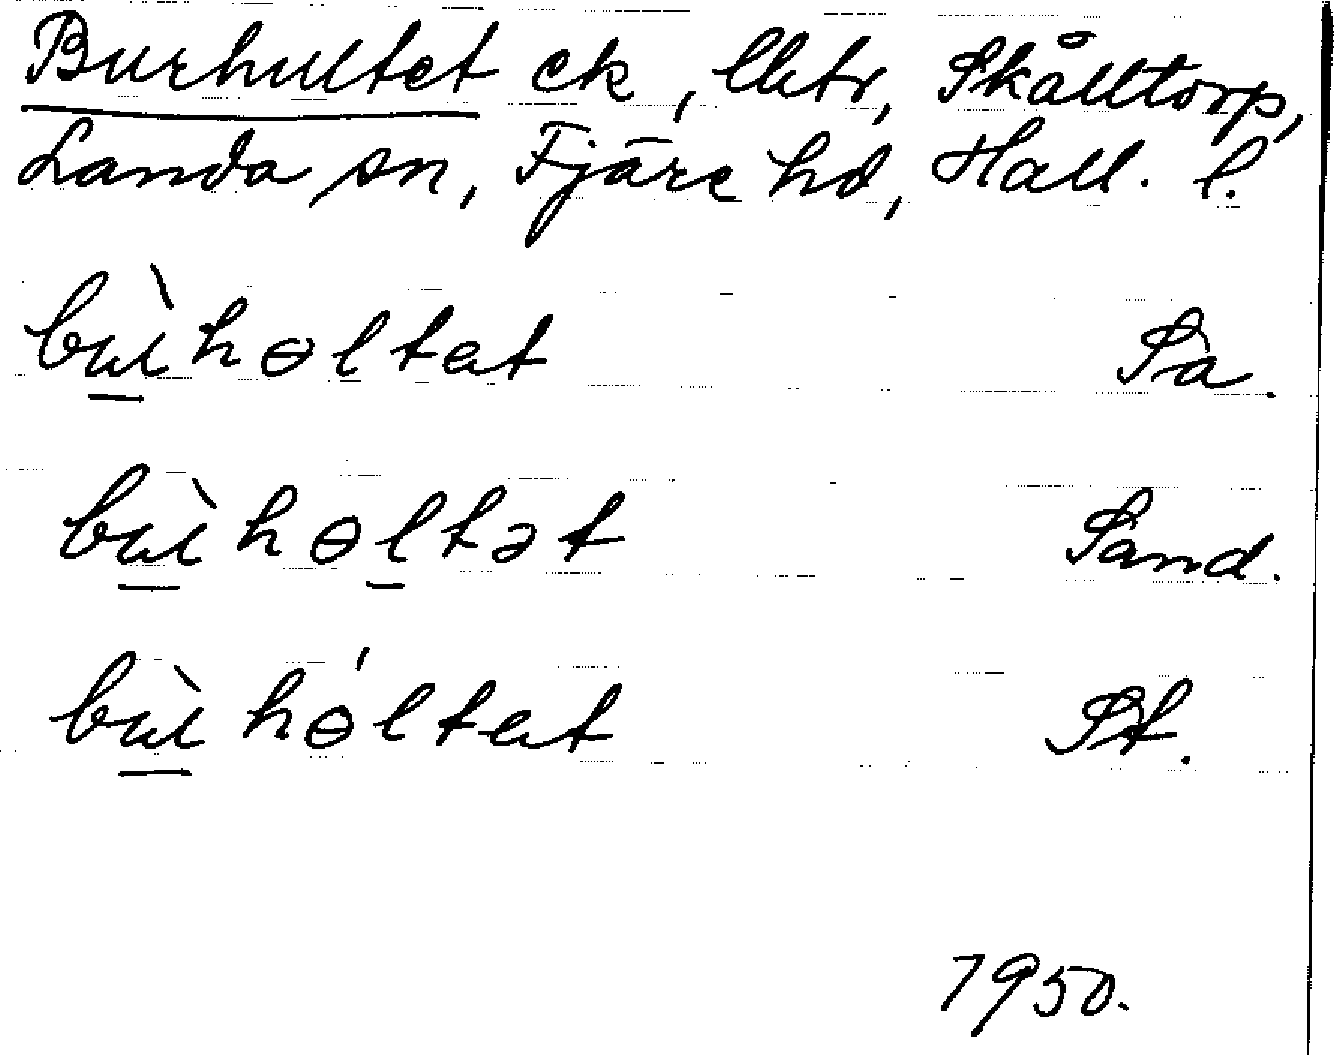 Burhultet ck, lktr, Skålltorp,
Landa sn, Fjäre hd, Hall. l.
bù̲hɵltat Sa.
bù̲hɵl̲tət Sand.
bù̲hɵ́ltat St.
1950.